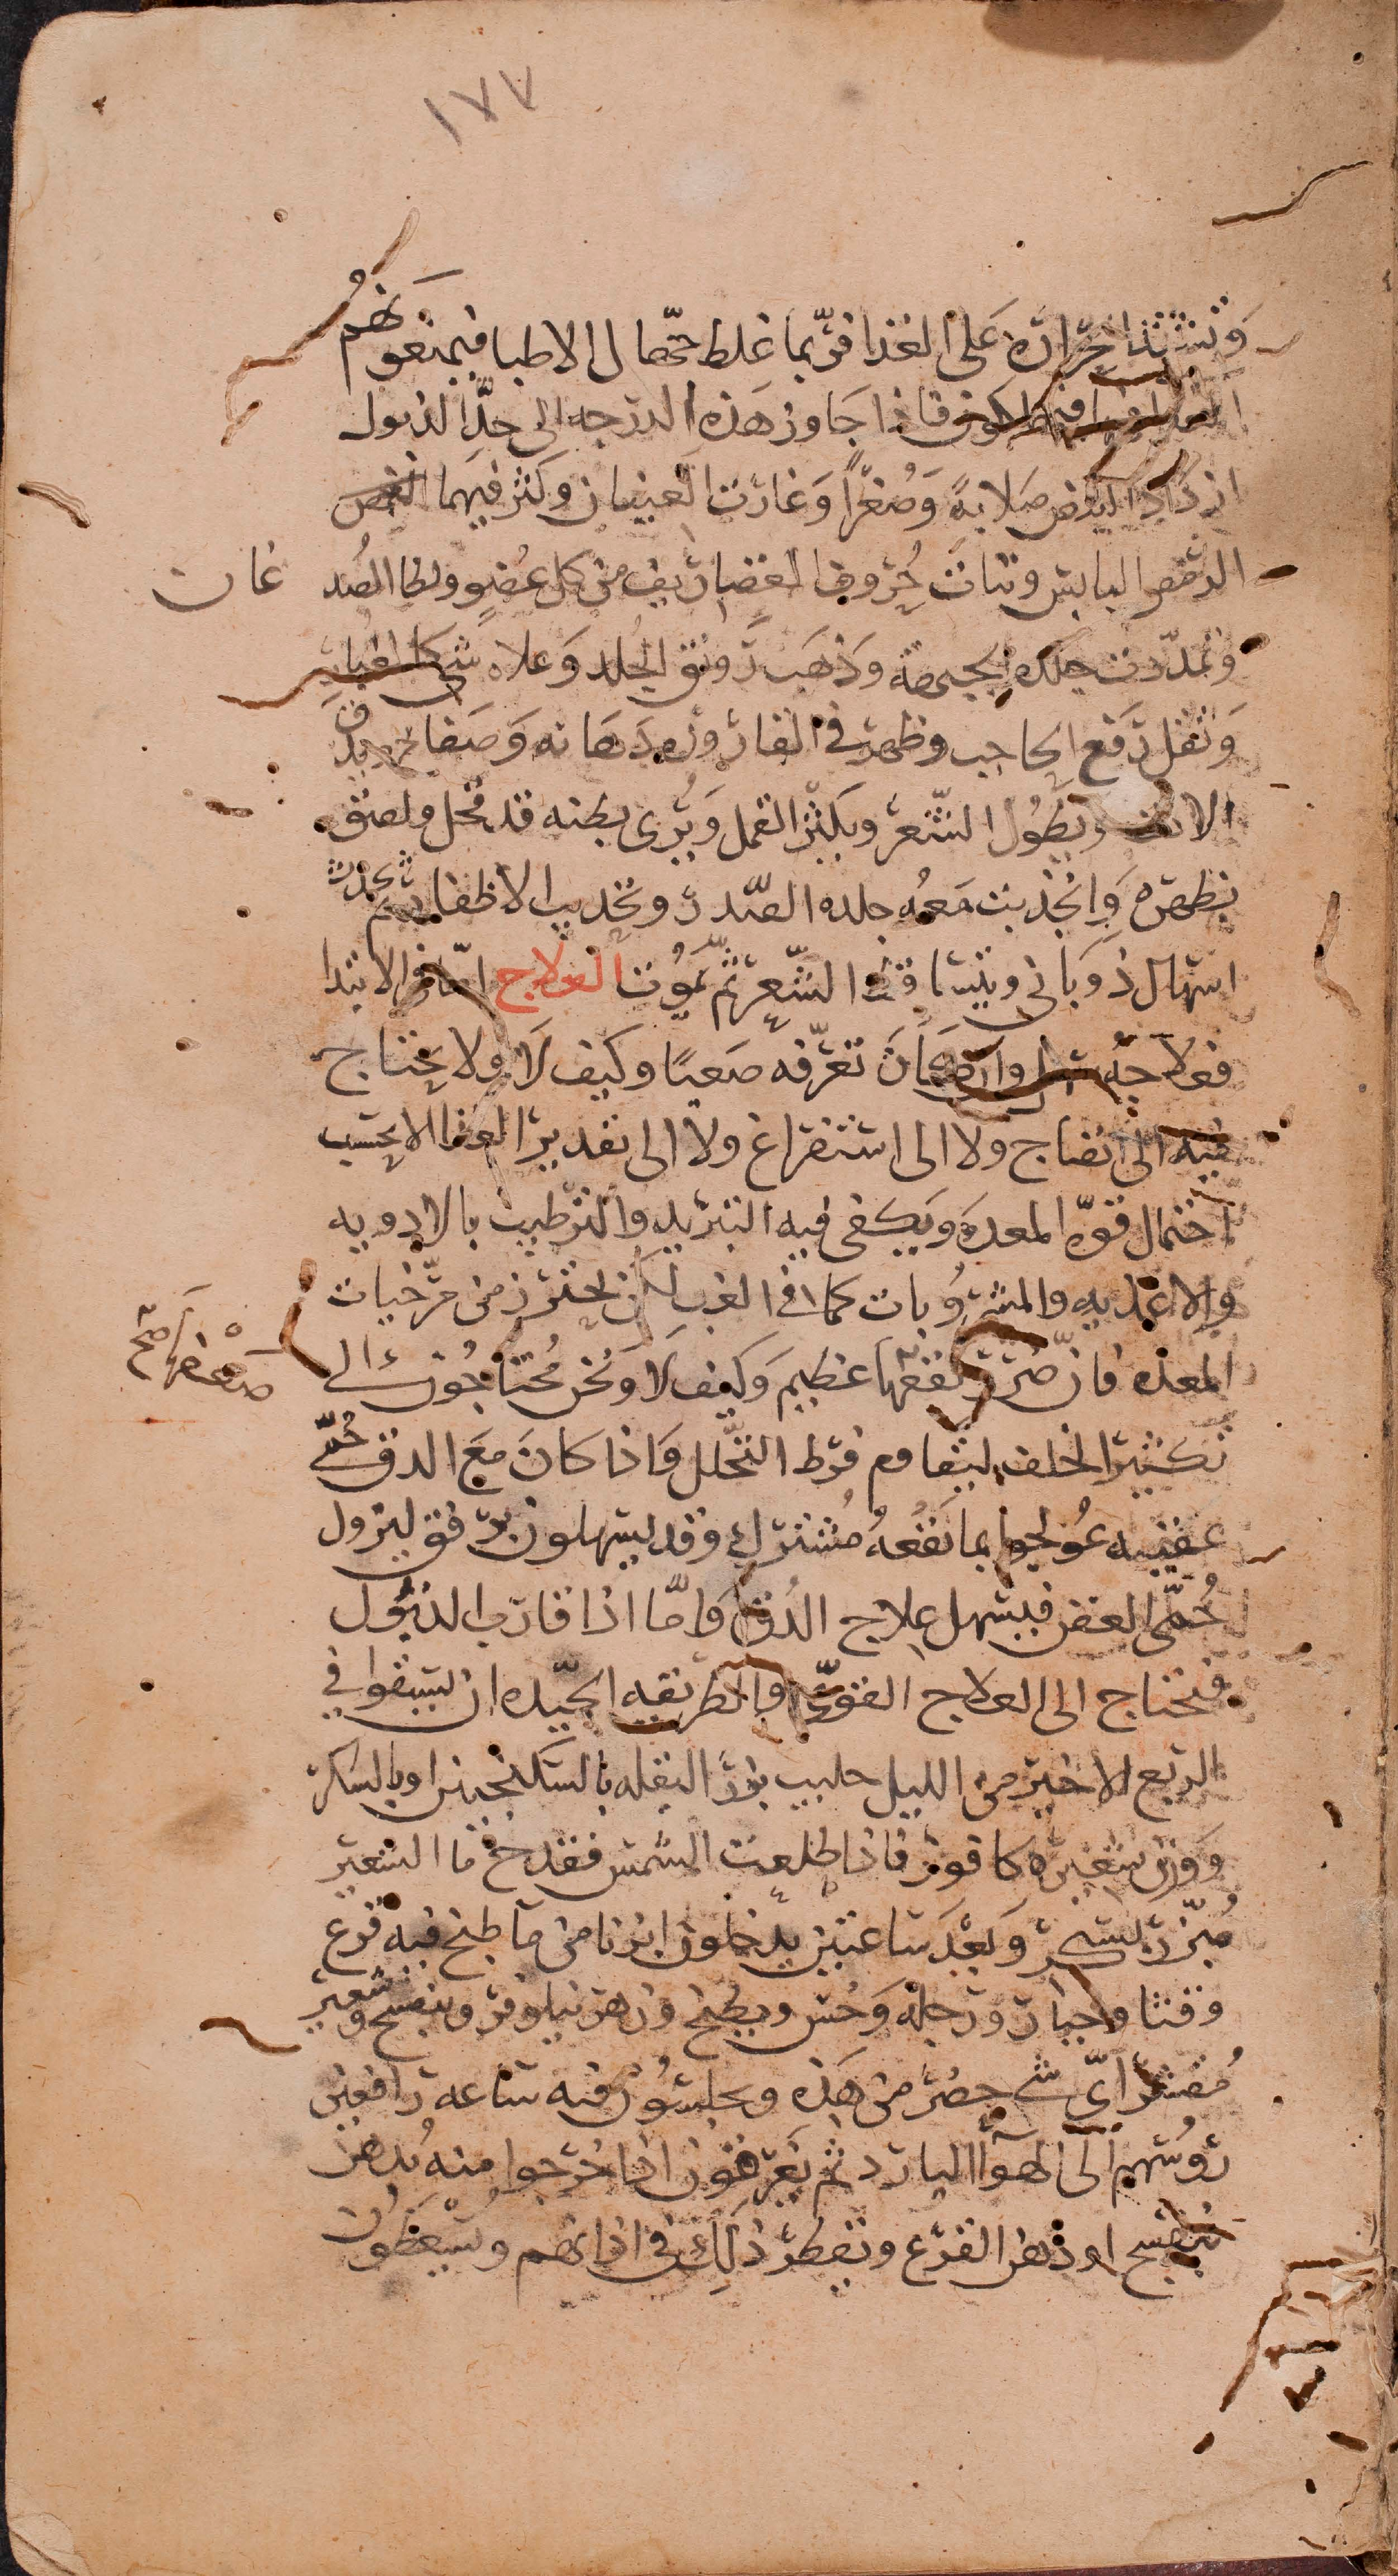 ١٧٧
وتشتد الحرارة على الغذا فربما غلط جهال الاطبا فيمنعونهم
الغذا فيهلكون فاذا جاوز هذه الدرجه الى حد الذبول
ازداد النبض صلابة وصغرا وغارت العينان وكثر فيهما
الرمص اليابس ونتات حروف الغضاريف من كل عضو ولطا الصد
غان
وتمددت جلدة الجبهة وذهب رونق الجلد وعلاه شي كالغبار
وثقل رفع الحاجب وظهرت في القارورة دهانه وصفايح ويدق
الانف ويطول الشعر ويكثر القمل ويرى بطنه قد قحل ولصق
بظهره وانجذبت معه جلده الصدر وتحديب الاظفار ثم يحدث
اسهال ذوباني ويتساقط الشعر ثم يموت العلاج اما في الابتدا
فعلاجه سهل وان كان تعرفه صعبا وكيف لا ولا يحتاج
فيه الى انضاج ولا الى استفراغ ولا الى تقدير الغذا الا بحسب
احتمال قوة المعدة ويكفى فيه التبريد والترطيب بالادويه
والاغذيه والمشروبات كما في الغب لكن يحترز من مرخيات
المعده فان ضرر نفعها عظيم وكيف لا ونحن محتاجون الى
ضعفها صح
تكثير الخلف ليقاوم فرط التحلل واذا كان مع الدق حمى
عفنيه عولجوا بما نفعه مشترك وقد يسهلون برفق ليزول
حمى العفن فيسهل علاج الدق واما اذا قارب الذبول
فيحتاج الى العلاج القوي والطريقه الجيده ان يسقوا في
الربع الاخير من الليل حليب بزر البقله بالسكنجبين او بالسكر
ووزن شعيره كافور فاذا طلعت الشمس فقدح ما الشعير
مبرد بسكر وبعد ساعتين يدخلون ابزنا من ما طبخ فيه قرع
وقثا وخيار ورجلة وخس وبطيخ وزهر نيلوفر وبنفسج وشعير
مقشر اي شي حضر من هذه ويجلسون فيه ساعه رافعين
روسهم الى الهوا البارد ثم يعرقون اذا خرجوا منه بدهن
بنفسج او دهن القرع ونقطر ذلك في اذانهم ويسعطون